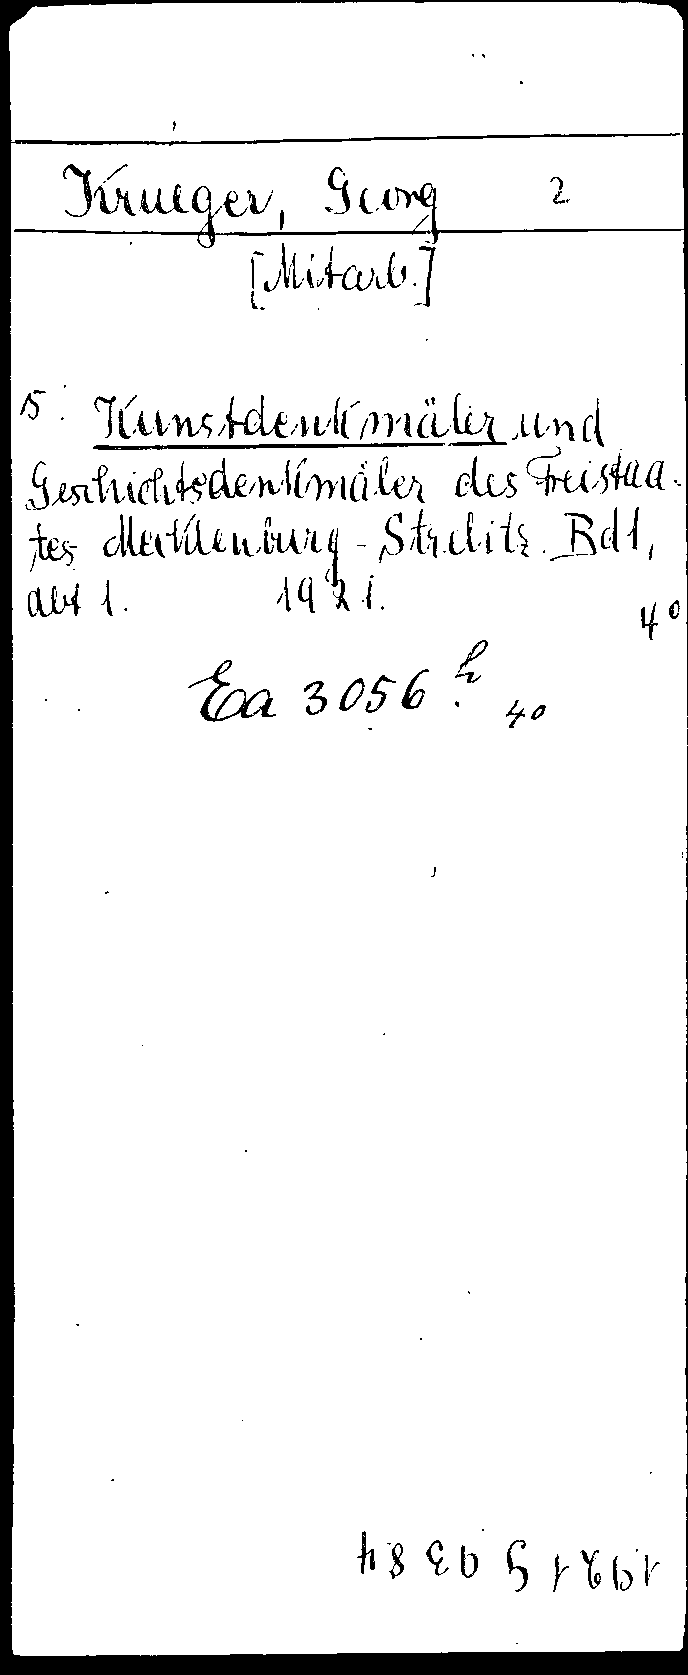 Krueger, Georg 2
[Mitarb.]
5. Kunstdenkmäler und
Geschichtsdenkmäler des Freistaa-
tes Mecklenburg-Strelitz. Bd 1,
Abt 1. 1921. 4°
Ea 3056 h 4°
1921 G 9384